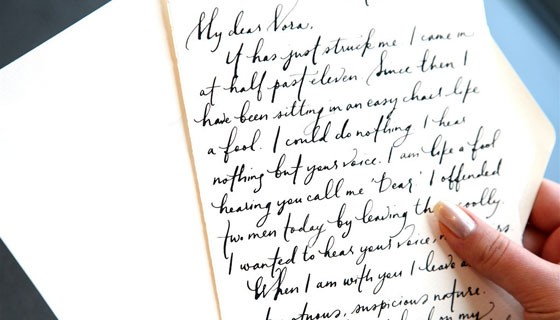 My dear Nora,
It has just struck me. I came in
at half past eleven. Since then I
have been sitting in an easy chair like
a fool. I could do nothing. I hear
nothing but your voice. I am like a fool
hearing you call me 'Dear.' I offended
two men today by leaving coolly.
I wanted to hear your voice,
When I am with you I leave
suspicious nature.
on my